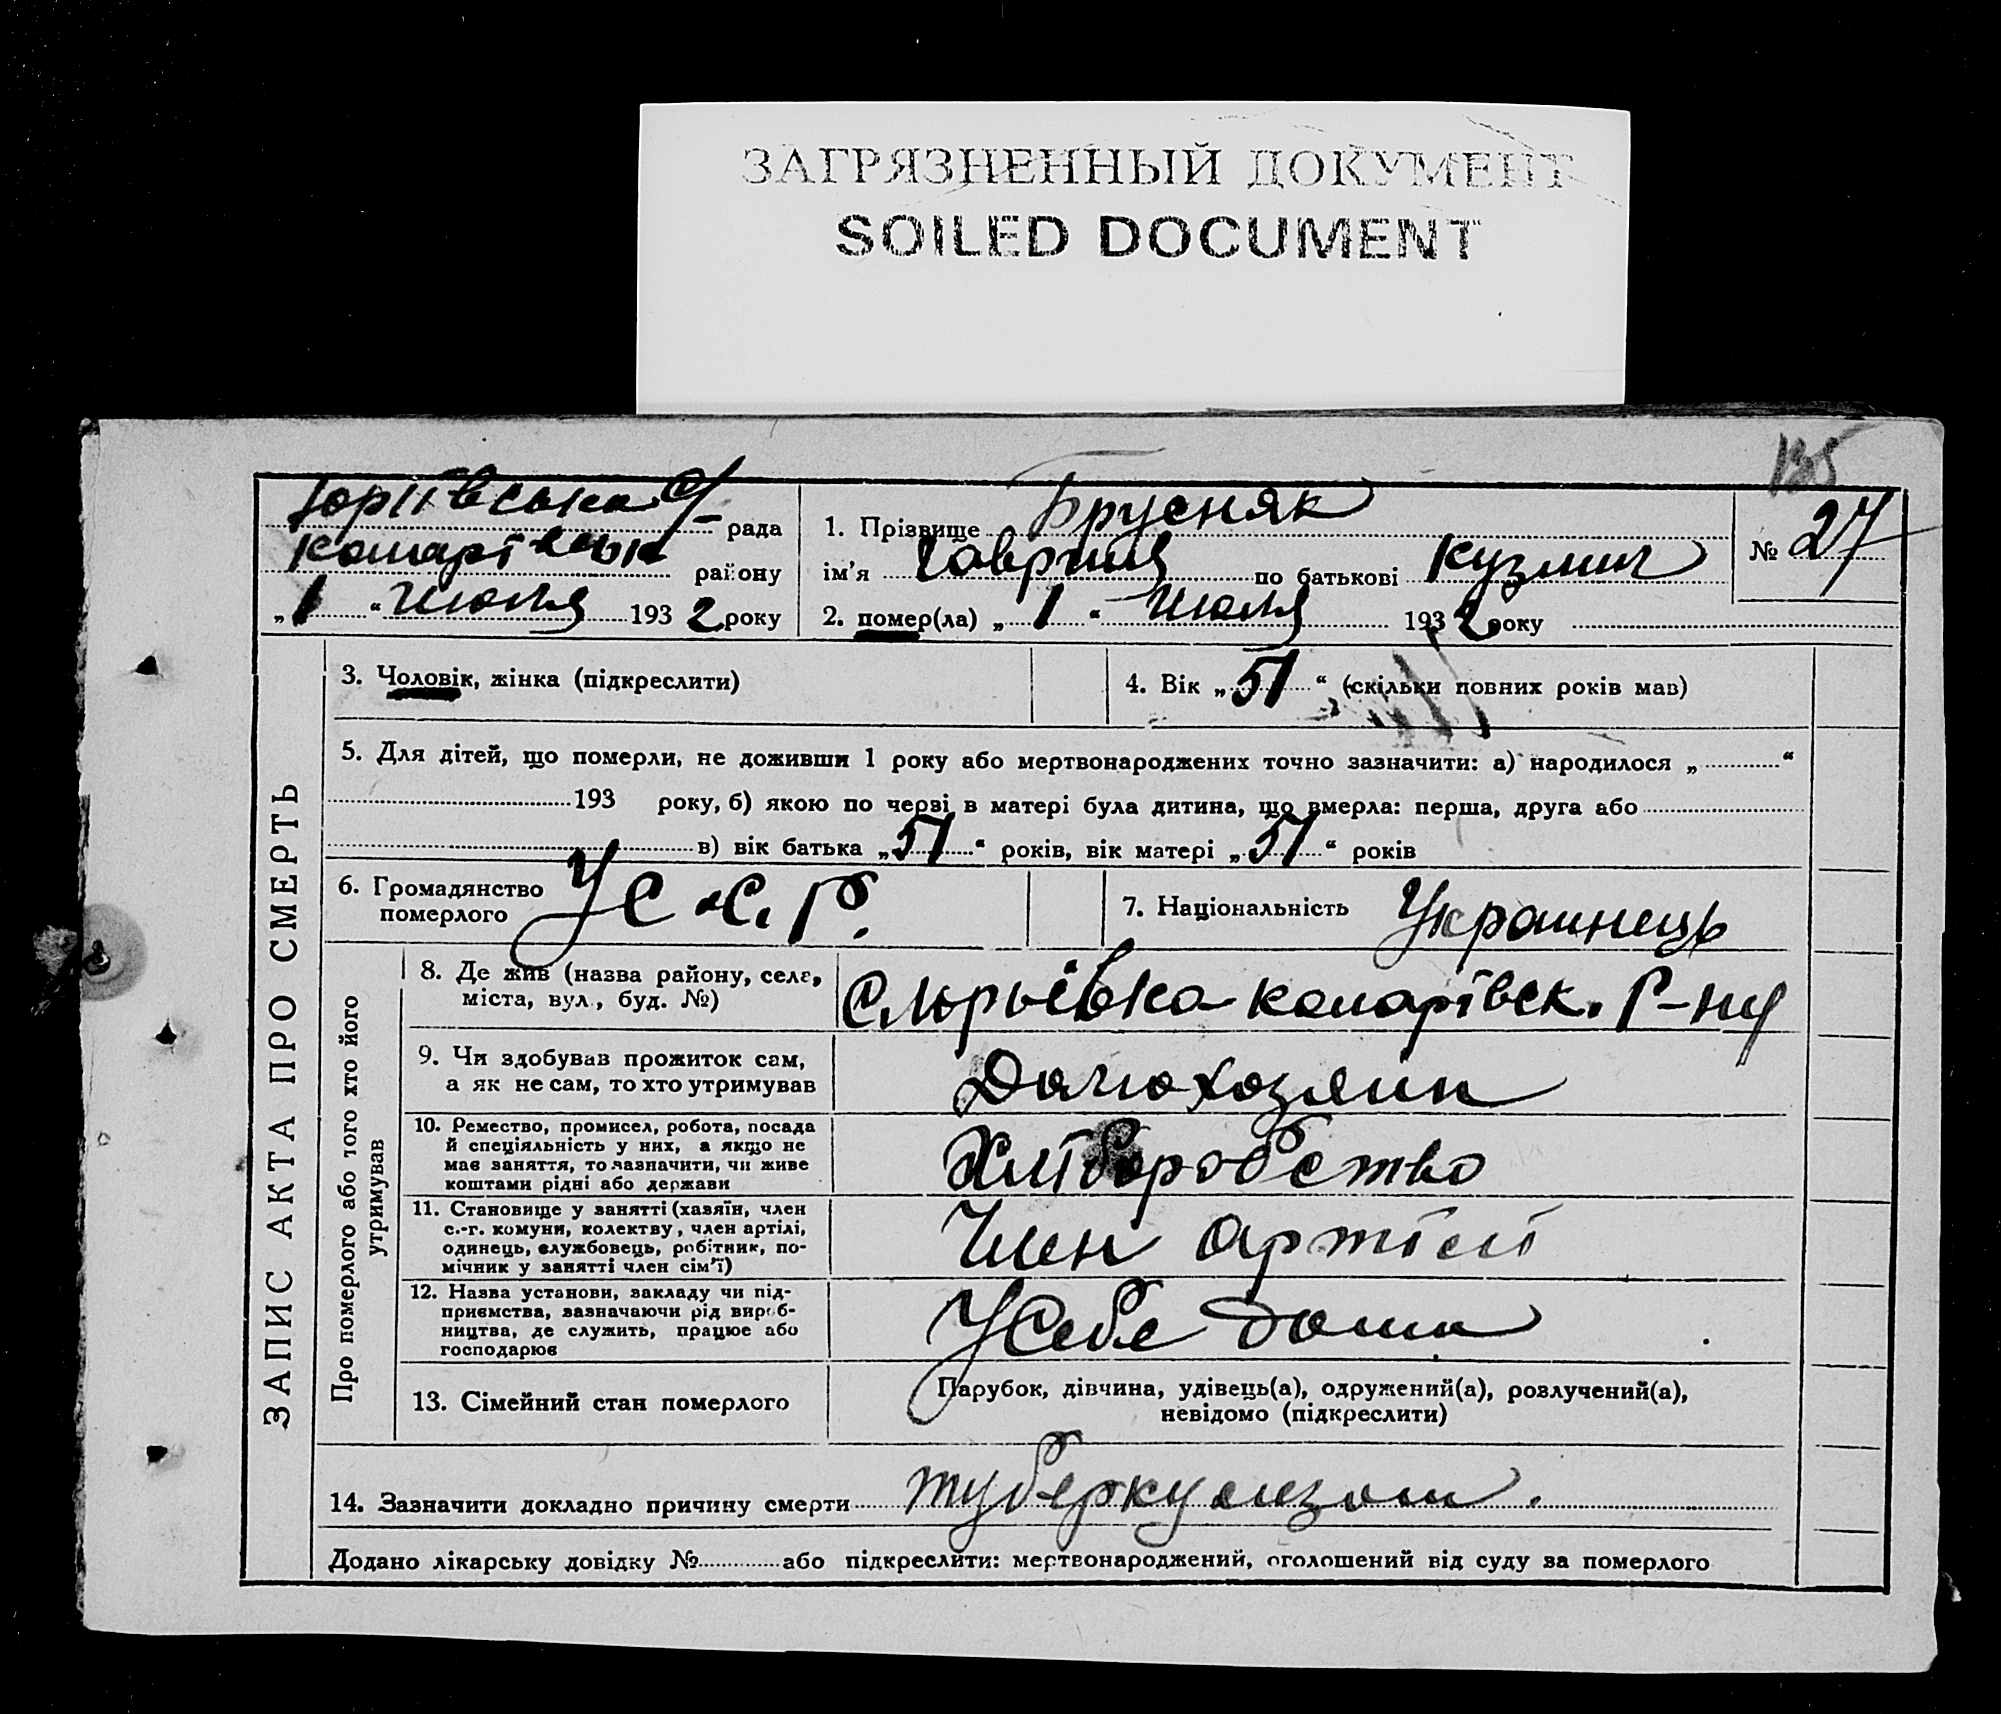 ЗАГРЯЗНЕННЫЙ ДОКУМЕНТ
SOILED DOCUMENT
135
Юріївська с/- рада
комарівськ району
„1“ Июля 1932 року
1. Прізвище Брусняк
ім’я Гаврил по батькові Кузмич
2. помер(ла) „1“ Июля 1932 року
№ 27
ЗАПИС АКТА ПРО СМЕРТЬ
3. Чоловік, жінка (підкреслити)
4. Вік „51“ (скільки повних років мав)
5. Для дітей, що померли, не доживши 1 року або мертвонароджених точно зазначити: а) народилося „ “
193 року, б) якою по черві в матері була дитина, що вмерла: перша, друга або
в) вік батька „51“ років, вік матері „51“ років
6. Громадянство
померлого
У.С.С.Р.
7. Національність Украинець
Про померлого або того хто його
утримував
8. Де жив (назва району, села,
міста, вул., буд. №)
с Юрьевка комарівск. Р-ну
9. Чи здобував прожиток сам,
а як не сам, то хто утримував
Домохозяин
10. Ремество, промисел, робота, посада
й спеціяльність у них, а якщо не
має заняття, то зазначити, чи живе
коштами рідні або держави
Хліборобство
11. Становище у занятті (хазяїн, член
с.-г. комуни, колектву, член артілі,
одинець, службовець, робітник, по-
мічник у занятті член сім’ї)
Член артілі
12. Назва установи, закладу чи під-
приємства, зазначаючи рід вироб-
ництва, де служить, працює або
господарює
У себе дома
13. Сімейний стан померлого
Парубок, дівчина, удівець(а), одружений(а), розлучений(а),
невідомо (підкреслити)
14. Зазначити докладно причину смерти туберкулизом.
Додано лікарську довідку № або підкреслити: мертвонароджений, оголошений від суду за померлого